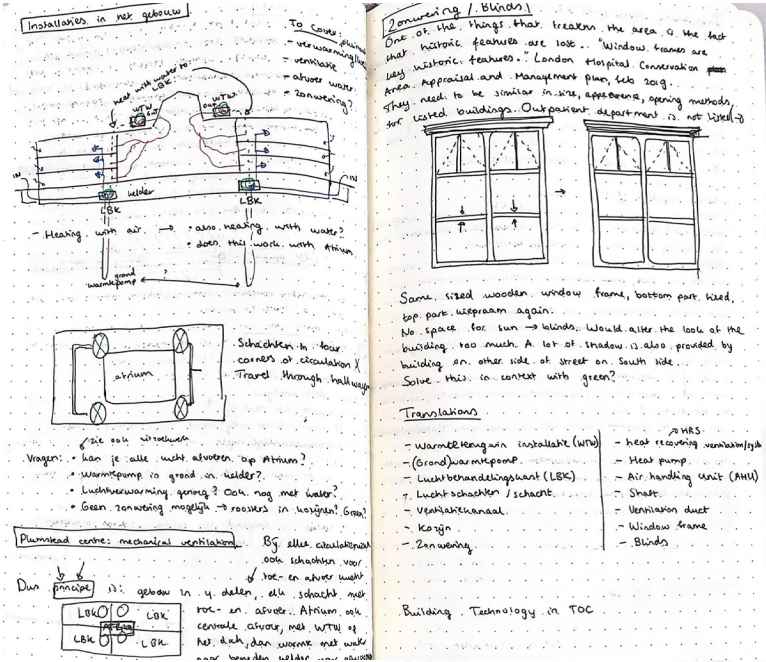 Installaties in het gebouw
To Cover:
- verwarming
- ventilatie
- afvoer water
- zonwering?
heat with water to
LBK.
WTW
WTW
IN
IN
kelder
LBK
LBK
- Heating with air. → • also heating with water?
• does this work with Atrium
grond
warmtepomp
?
atrium
Schachten in four
corners of circulation X
Travel through hallways
zie ook
Vragen: • kan je alle lucht afvoeren op Atrium?
• Warmtepomp in grond in kelder?
• Luchtverwarming genoeg? Ook nog met water?
• Geen zonwering mogelijk → roosters in kozijnen? Groen?
Plumstead centre: mechanical ventilation
Bij elke
ook schachten voor
toe- en afvoer lucht
Dus principe is: gebouw in 4 delen, elk schacht met
toe- en afvoer. Atrium ook
centrale afvoer, met WTW op
het dak, dan warmte met
naar beneden kelder
LBK
LBK
LBK
LBK
Zonwering / Blinds
One of the things that treatens the area is the fact
that historic features are lost. "Window frames are
key historic features." London Hospital Conservation
Area Appraisal and Management plan, feb 2019.
They need to be similar in size, appearence, opening methods,
for listed buildings. Outpatient department is not listed
Same sized wooden window frame, bottom part fixed,
top part again.
No space for sun → blinds. Would alter the look of the
building too much. A lot of shadow is also provided by
building on other side of street on South side.
Solve this in context with green?
Translations
- Warmteterugwin installatie (WTW)
- (Grond)warmtepomp
- Luchtbehandelingskast (LBK)
- Luchtschachten / schacht
- Ventilatiekanaal
- Kozijn
- Zonwering
HRS
- heat recovering ventilation/
- Heat pump
- Air handling Unit (AHU)
- Shaft
- Ventilation duct
- Window frame
- Blinds
Building Technology in TOC